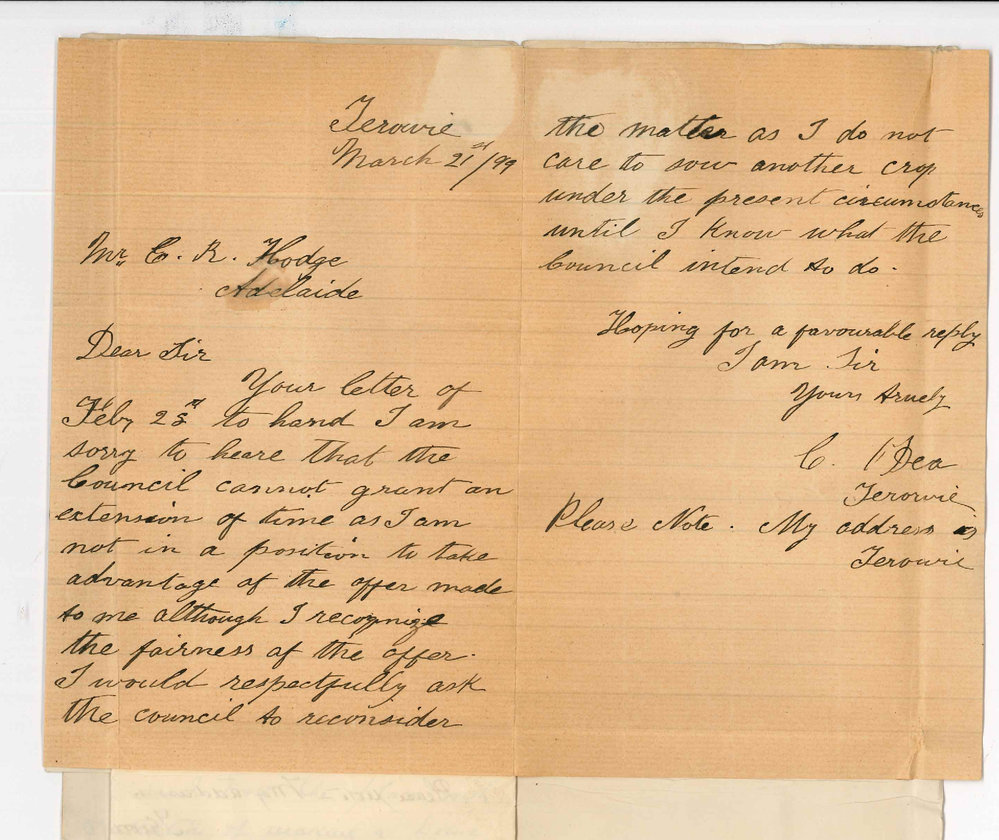 Terowie
March 21st/99
Mr. C. R. Hodge
Adelaide
Dear Sir
Your letter of
Feby 23rd to hand I am
sorry to heare that the
Council cannot grant an
extension of time as I am
not in a position to take
advantage of the offer made
to me although I recognize
the fairness of the offer.
I would respectfully ask
the council to reconsider
the matter as I do not
care to sow another crop
under the present circumstances
until I know what the
Council intend to do.
Hoping for a favourable reply
I am Sir
Yours truely
C. O'Dea
Terowie
Please Note. My address is
Terowie